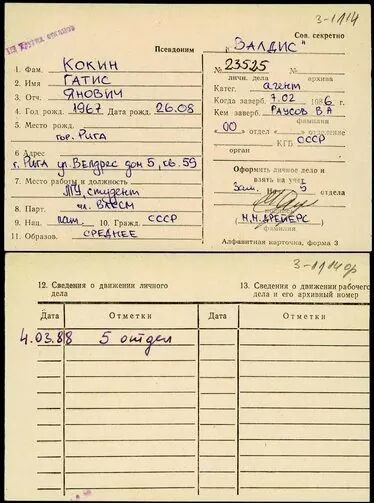 3-1114
Сов. секретно
Псевдоним „ВАЛДИС"
1. Фам. КОКИН
2. Имя ГАТИС
3. Отч. ЯНОВИЧ
4. Год рожд. 1967 Дата рожд. 26.08
5. Место рожд.
гор. РИГА
6. Адрес
г. РИГА ул. ВЕЛДРЕС дом 5, кв. 59
7. Место работы и должность
студент
8. Парт. чл. ВЛКСМ
9. Нац. лат. 10. Гражд. СССР
11. Образов. СРЕДНЕЕ
№ 23525 №
личн. дела архива
Катег. агент
Когда заверб. 7.02 1986 г.
Кем заверб. РАУСОВ В А
фамилия
00 отдел отделение
КГБ СССР
орган
Оформить личное дело и
взять на учет
Зам. 5 отдела
Н.Н. ДРЕЙЕРС
(фамилия)
Алфавитная карточка, форма 3
3-1114
12. Сведения о движении личного
дела
13. Сведения о движении рабочего
дела и его архивный номер
Дата Отметки Дата Отметки
4.03.88 5 отдел